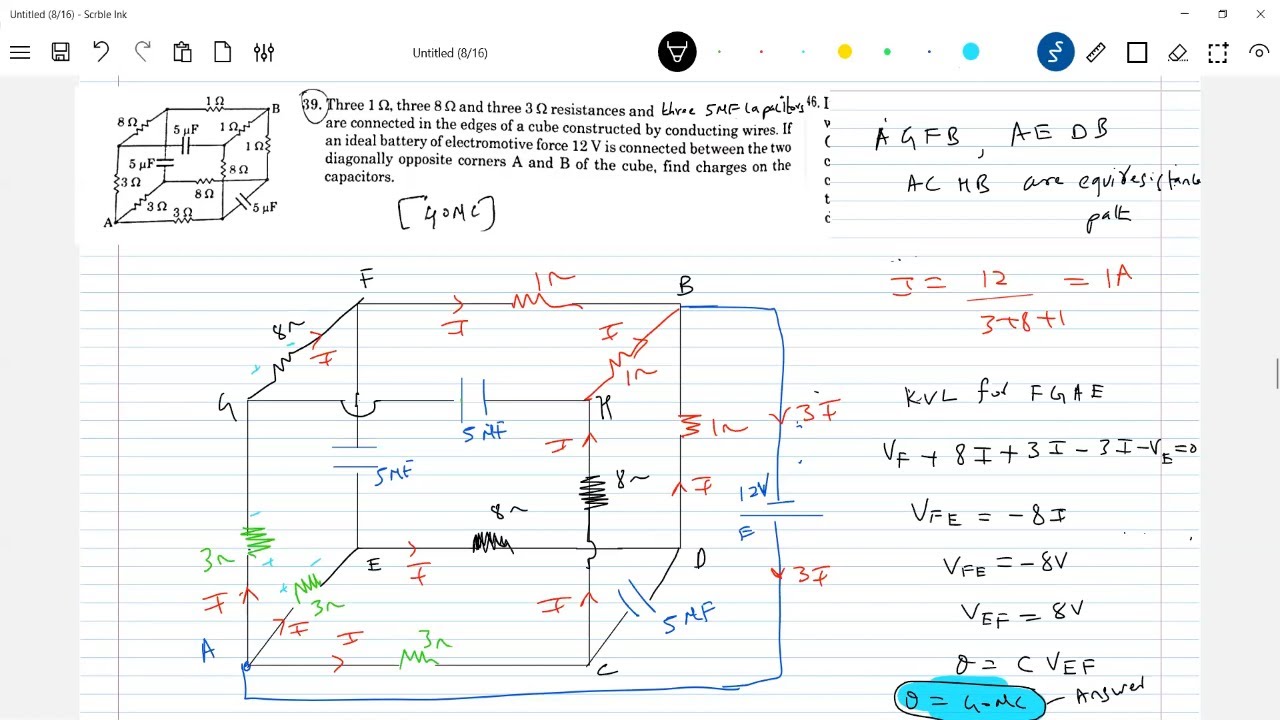 Untitled (8/16) - Scrble Ink
Untitled (8/16)
39. Three 1 Ω, three 8 Ω and three 3 Ω resistances and three 5MF capacitors
are connected in the edges of a cube constructed by conducting wires. If
an ideal battery of electromotive force 12 V is connected between the two
diagonally opposite corners A and B of the cube, find charges on the
capacitors.
[40MC]
46. I
1 Ω
B
8 Ω
5 μF
1 Ω
1 Ω
5 μF
8 Ω
3 Ω
8 Ω
3 Ω
3 Ω
5 μF
A
A G F B , A E D B
A C H B are equiresistance
path
I = 12 / 3+8+1 = 1A
KVL for F G A E
VF + 8I + 3I - 3I - VE = 0
VFE = -8I
VFE = -8V
VEF = 8V
Q = C VEF
Q = 40MC - Answer
F
1~
B
8~
I
I
I
1~
G
H
5MF
1~
3I
5MF
I
8~
I
12V
E
8~
3~
E
I
D
3I
I
3~
I
I
5MF
I
3~
A
C